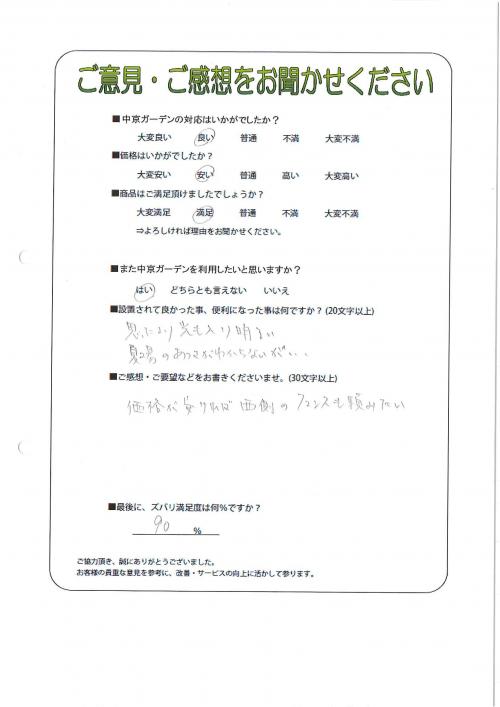 ご意見・ご感想をお聞かせください
■中京ガーデンの対応はいかがでしたか？
大変良い 良い 普通 不満 大変不満
■価格はいかがでしたか？
大変安い 安い 普通 高い 大変高い
■商品はご満足頂けましたでしょうか？
大変満足 満足 普通 不満 大変不満
⇒よろしければ理由をお聞かせください。
■また中京ガーデンを利用したいと思いますか？
はい どちらとも言えない いいえ
■設置されて良かった事、便利になった事は何ですか？(20文字以上)
思ったより光も入り明るい
夏場のあつさがわからないが・・
■ご感想・ご要望などをお書きくださいませ。(30文字以上)
価格が安ければ西側のフェンスも頼みたい
■最後に、ズバリ満足度は何％ですか？
90 ％
ご協力頂き、誠にありがとうございました。
お客様の貴重な意見を参考に、改善・サービスの向上に活かして参ります。